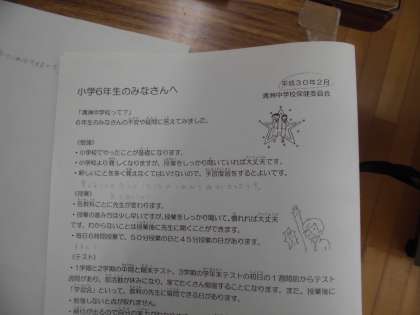 平成30年2月
小学6年生のみなさんへ
清神中学校保健委員会
「清神中学校って?」
6年生のみなさんの不安や疑問に答えてみました。
《勉強》
・小学校でやったことが基礎になります。
・小学校より難しくなりますが、授業をしっかり聞いていれば大丈夫です。
・新しいことを多く覚えなくてはいけないので、予習復習をするとよいです。
《授業》
・各教科ごとに先生が変わります。
・授業の進み方は少し早いですが、授業をしっかり聞いて、慣れれば大丈夫
です。わからないことは授業後に先生に聞くことができます。
・毎日6時間授業で、50分授業の日と45分授業の日があります。
《テスト》
・1学期と2学期の中間と期末テスト、3学期の学年末テストの初日の1週間前からテスト
週間があり、部活動が休みになり、家でたくさん勉強することになります。また、授業後に
「学習会」といって、教科の先生に質問できる日があります。
・勉強しないと点が取れません。